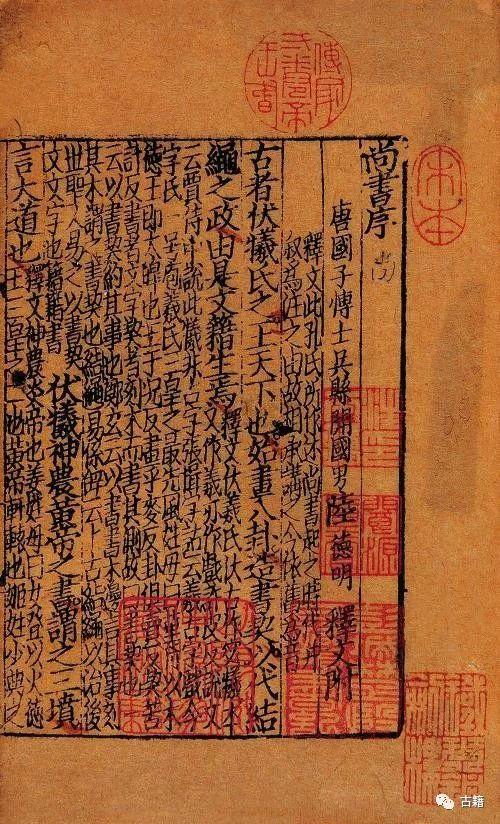 尚書序
唐國子博士吳縣開國男陸德明 釋文附
釋文此孔氏所作述尚書起時代并
敘為注之由故相承講之今依舊為音
古者伏犧氏之王天下也始畫八卦造書契以代結
繩之政由是文籍生焉
釋文伏犧氏伏古作虙犧本
又作羲亦作戲許皮反說文
云賈侍中說此犧非古字張揖字詁云羲古字戲今
字氏一号庖羲氏三皇之最先風姓母曰華胥以木
德王即太皡也王于況反畫乎麥反卦俱賣反契苦
計反書者文字契者刻木而書其側故曰書契也一
云以書契約其事也鄭玄云以書書木邊言其事刻
其木謂之書契也結繩易係辭云上古結繩以治後
世聖人易之以書契
文文字也籍籍書
伏犧神農黃帝之書謂之三墳
言大道也
釋文神農炎帝也姜姓母曰女登以火德
王三皇之二也黃帝軒轅也姬姓少典之
宋本
古籍